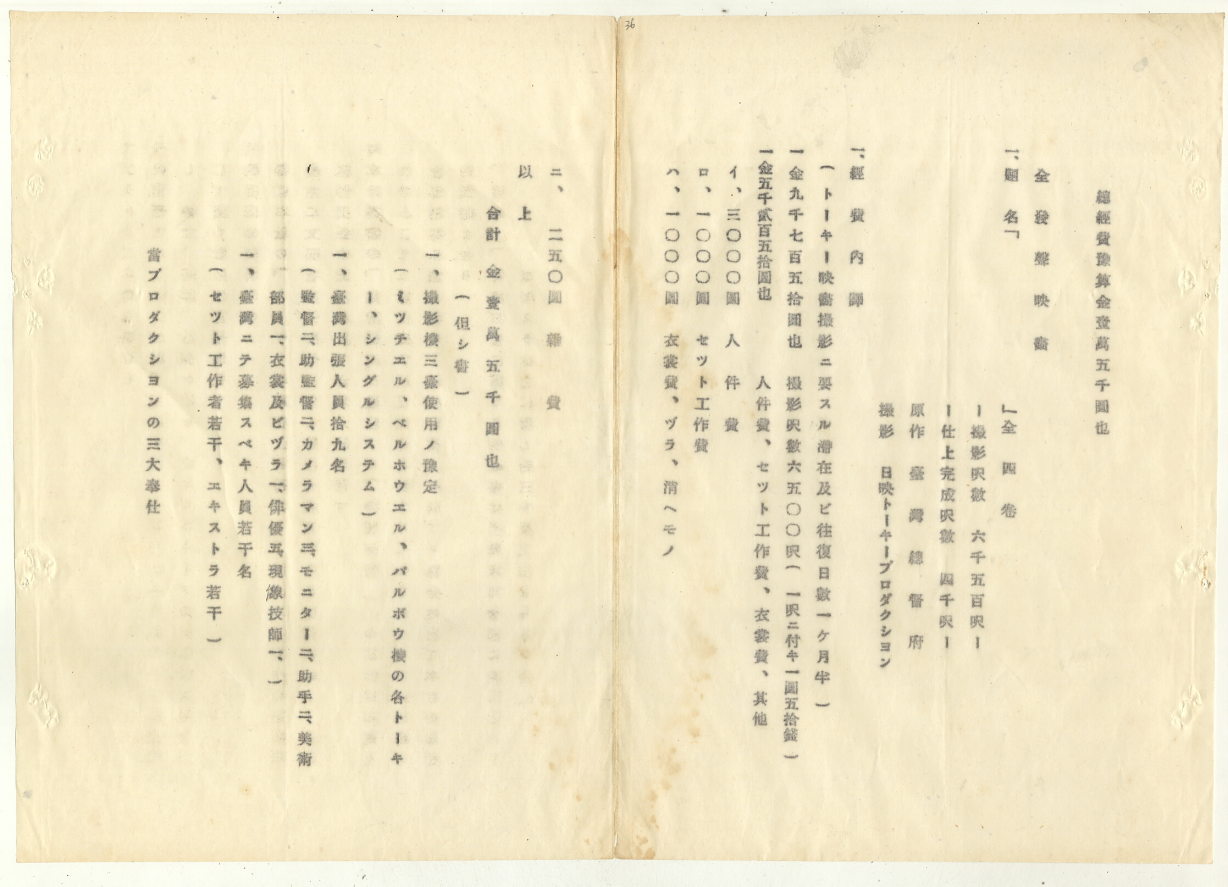 36
總經費豫算金壹萬五千圓也
全發聲映畵
一、題名「
」全四卷
ー撮影呎數 六千五百呎ー
ー仕上完成呎數 四千呎ー
原作 臺灣總督府
撮影 日映トーキープロダクシヨン
一、經費內譯
(トーキー映畵撮影ニ要スル滯在及ビ往復日數一ケ月半)
一金九千七百五拾圓也 撮影呎數六五〇〇呎(一呎ニ付キ一圓五拾錢)
一金五千貳百五拾圓也 人件費、セツト工作費、衣裳費、其他
イ、三〇〇〇圓 人件費
ロ、一〇〇〇圓 セツト工作費
ハ、一〇〇〇圓 衣裳費、ヅラ、消ヘモノ
ニ、二五〇圓 雜費
以上
合計 金壹萬五千圓也
(但シ書)
一、撮影機三臺使用ノ豫定
(ミツチエル、ベルホウエル、パルボウ機の各トーキ
ー、シングルシステム)
一、臺灣出張人員拾九名
(監督二、助監督二、カメラマン三、モニター二、助手二、美術
部員一、衣裳及ビヅラ一、俳優五、現像技師一、)
一、臺灣ニテ募集スベキ人員若干名
(セツト工作者若干、エキストラ若干)
當プロダクシヨンの三大奉仕